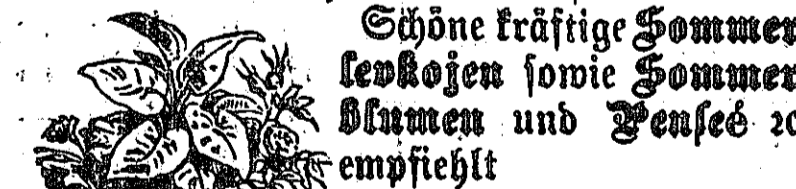 Schöne kräftige Sommer
levkojen sowie Sommer
blumen und Penseé ꝛc
empfiehlt